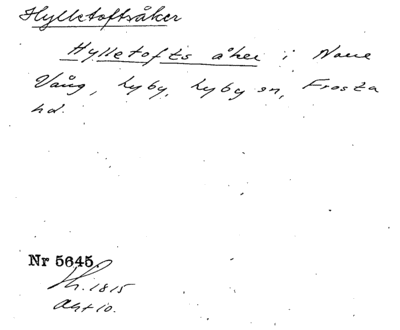 Hylletoftsåker
Hylletofts åker i Norre
Vång, Lyby, Lyby sn, Frosta
hd.
Nr 5645.
Sk. 1815
Akt 10.